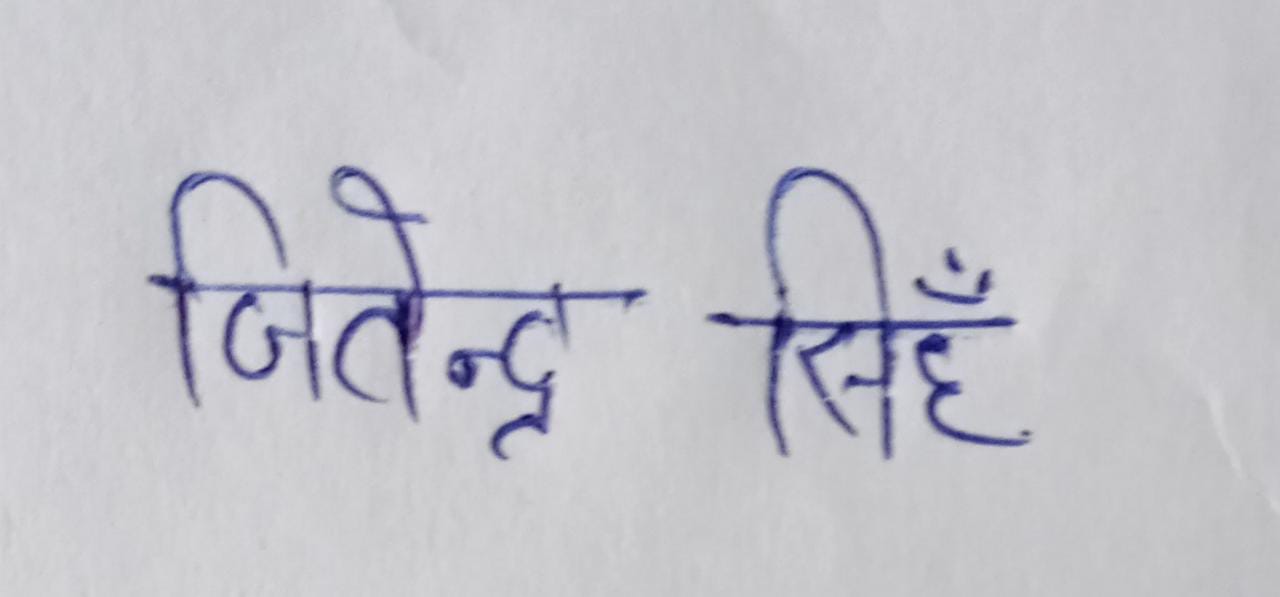 जितेन्द्र सिहँ